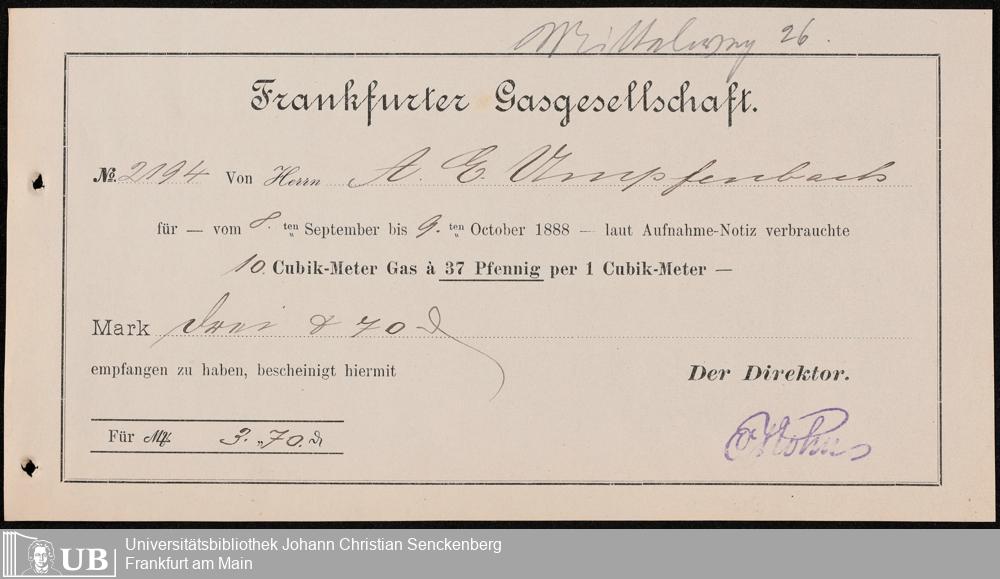 Mittelweg 26.
Frankfurter Gasgesellschaft.
No. 2194 Von Herrn A. E. Umpfenbach
für — vom 8. ten September bis 9. ten October 1888 — laut Aufnahme-Notiz verbrauchte
10. Cubik-Meter Gas à 37 Pfennig per 1 Cubik-Meter —
Mark drei & 70 ₰
empfangen zu haben, bescheinigt hiermit
Der Direktor.
Für Mk. 3. „70. ₰
UB Universitätsbibliothek Johann Christian Senckenberg
Frankfurt am Main